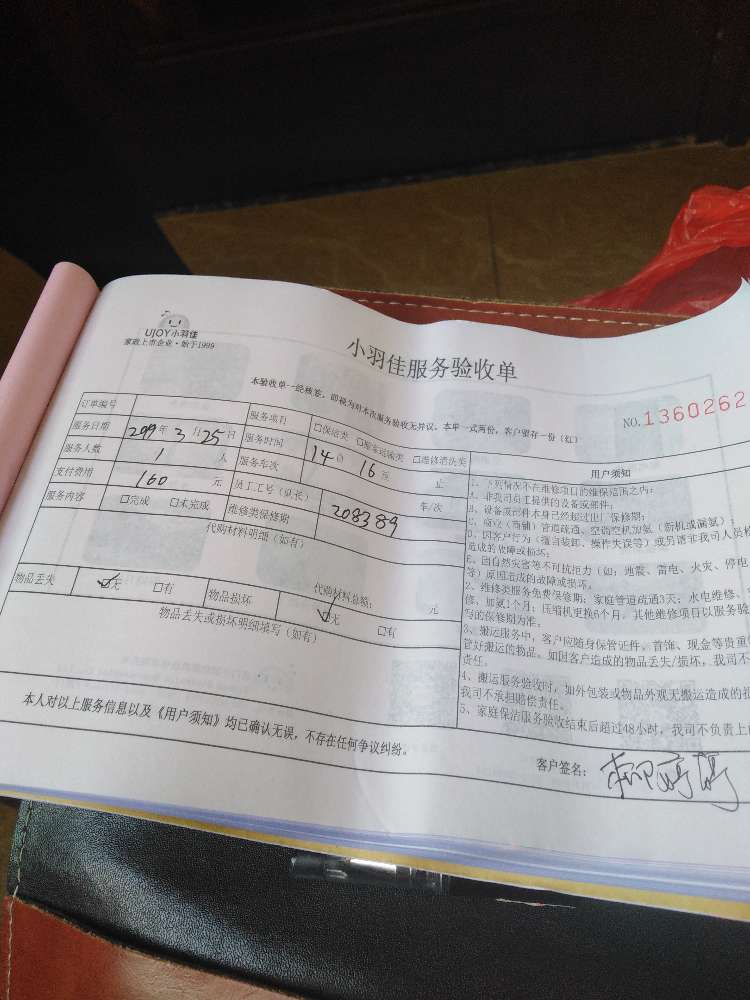 UJOY小羽佳
家政上市企业·始于1999
小羽佳服务验收单
本验收单一经核签,即视为对本次服务验收无异议。本单一式两份,客户留存一份(红)
NO.1360262
订单编号 服务项目 □保洁类 □搬车运输类 □维修清洗类
服务日期 2019年3月25日 服务时间 14点 16点 止
服务人数 1人 服务车次 车/次
支付费用 160元 员工工号(队长) 208389
服务内容 □完成 □未完成 维修类保修期
代购材料明细(如有)
代购材料总额: 元
物品丢失 □无 □有 物品损坏 □无 □有
物品丢失或损坏明细填写(如有)
用户须知
1、下列情况不在维修项目的维保范围之内:
A、非我司员工提供的设备或部件;
B、设备或部件本身已经超过出厂保修期;
C、商业(商铺)管道疏通、空调空机加氨(新机或漏氨);
D、因客户行为(擅自装卸、操作失误等)或另请非我司人员
造成的故障或损坏;
E、因自然灾害等不可抗拒力(如:地震、雷电、火灾、停电
等)原因造成的故障或损坏。
2、维修类服务免费保修期:家庭管道疏通3天;水电维修、
修、加氨1个月;压缩机更换6个月。其他维修项目以服务验
写的保修期为准。
3、搬运服务中,客户应随身保管证件、首饰、现金等贵重
管好搬运的物品。如因客户造成的物品丢失/损坏,我司不
责任。
4、搬运服务验收时,如外包装或物品外观无搬运造成的
我司不承担赔偿责任。
5、家庭保洁服务验收结束后超过48小时,我司不负责上
本人对以上服务信息以及《用户须知》均已确认无误,不存在任何争议纠纷。
客户签名: